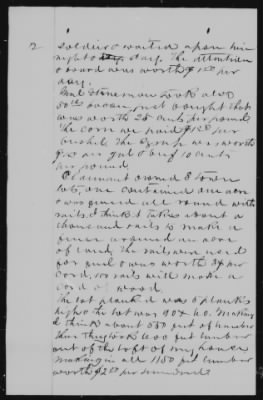 2
soldiers waited upon him
night & day. The attention
& board was worth $1.00 per
day.
Genl Stoneman took also
50 lbs bacon, just bought that
was worth 25 cents per pound.
The corn we paid $1.25 per
bushel. The Syrup was worth
per gal & beef 10 cents
per pound.
Claimant owned 2 town
lots, one contained one acre
& was fenced all round with
rails, I think it takes about a
thousand rails to make a
fence around an acre
of land, The rails were used
for fuel & was worth $4 per
cord, 100 rails will make a
cord of wood.
The lot planked was 5 planks
high & the lot was 90 x 60. Making
I think about 550 feet of lumber
then they took 600 feet lumber
out of the loft of my house
making in all 1150 feet lumber
worth $2.00 per hundred